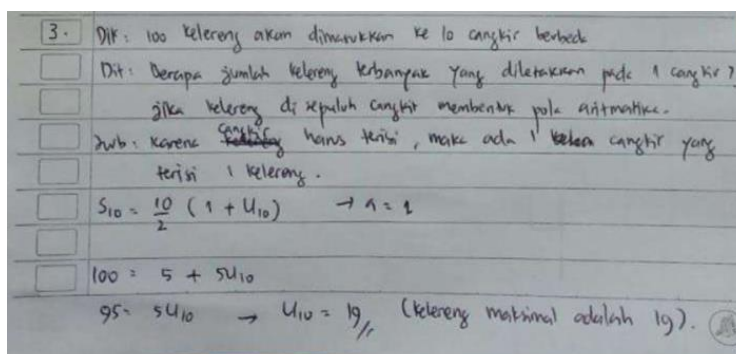 3. Dik: 100 kelereng akan dimasukkan ke 10 cangkir berbeda
Dit: Berapa jumlah kelereng terbanyak yang diletakkan pada 1 cangkir?
jika kelereng di sepuluh cangkir membentuk pola aritmatika.
Jwb: Karena cangkir harus terisi, maka ada 1 cangkir yang
terisi 1 kelereng.
S10 = 10/2 (1 + U10) → a = 1
100 = 5 + 5U10
95 = 5U10 → U10 = 19// (kelereng maksimal adalah 19).